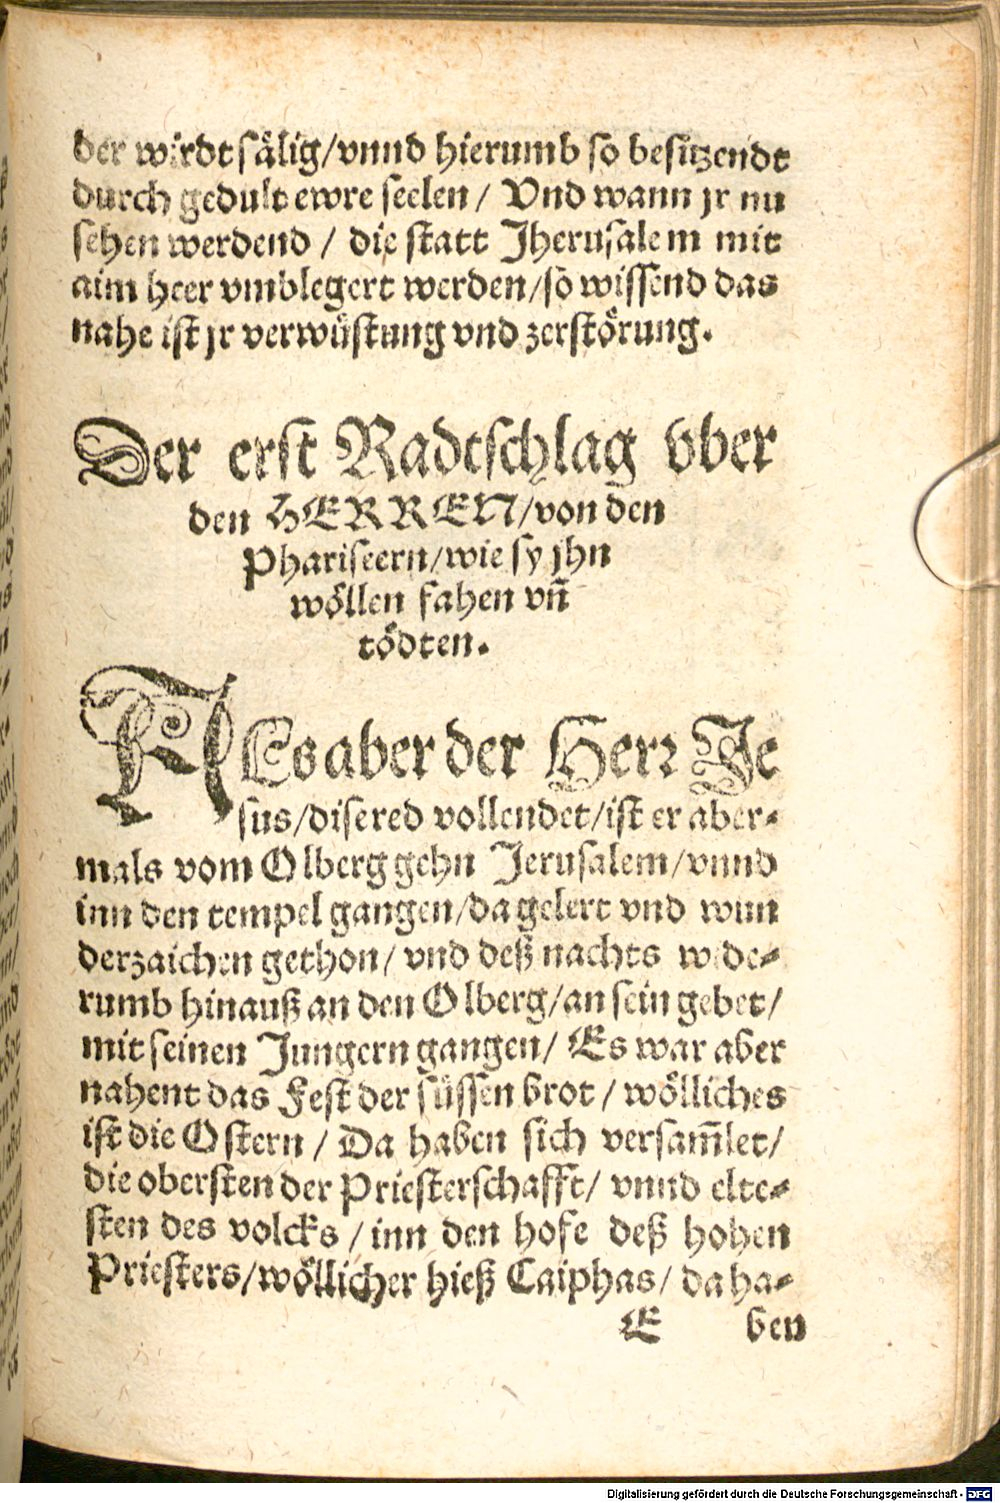 der wirdt sälig/vnnd hierumb so besitzendt
durch gedult ewre seelen / Vnd wann jr nu
sehen werdend / die statt Jherusalem mit
aim heer vmblegert werden/so wissend das
nahe ist jr verwüstung vnd zerstörung.
Der erst Radtschlag vber
den HERREN/von den
Phariseern/wie sy jhn
wöllen fahen vñ
tödten.
ALs aber der Herr Je
sus/dise red vollendet/ist er aber-
mals vom Olberg gehn Jerusalem/vnnd
inn den tempel gangen/da gelert vnd wun
derzaichen gethon/ vnd deß nachts wide-
rumb hinauß an den Olberg/an sein gebet/
mit seinen Jungern gangen/ Es war aber
nahent das Fest der süssen brot / wölliches
ist die Ostern / Da haben sich versam̃let/
die obersten der Priesterschafft/ vnnd elte-
sten des volcks / inn den hofe deß hohen
Priesters/wöllicher hieß Caiphas/ da ha-
E ben
Digitalisierung gefördert durch die Deutsche Forschungsgemeinschaft - DFG